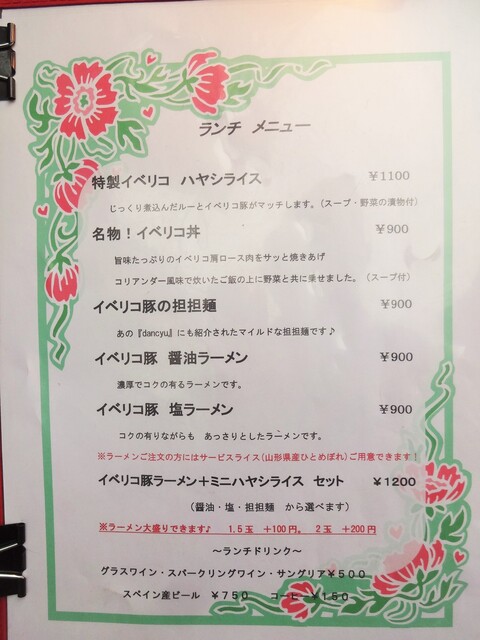 ランチ メニュー
特製イベリコ ハヤシライス ￥1100
じっくり煮込んだルーとイベリコ豚がマッチします。(スープ・野菜の漬物付)
名物！イベリコ丼 ￥900
旨味たっぷりのイベリコ肩ロース肉をサッと焼きあげ
コリアンダー風味で炊いたご飯の上に野菜と共に乗せました。(スープ付)
イベリコ豚の担担麺 ￥900
あの『dancyu』にも紹介されたマイルドな担担麺です♪
イベリコ豚 醤油ラーメン ￥900
濃厚でコクの有るラーメンです。
イベリコ豚 塩ラーメン ￥900
コクの有りながらも あっさりとしたラーメンです。
※ラーメンご注文の方にはサービスライス(山形県産ひとめぼれ)ご用意できます！
イベリコ豚ラーメン＋ミニハヤシライス セット ￥1200
(醤油・塩・担担麺 から選べます)
※ラーメン大盛りできます♪ 1.5玉 +100円。 2玉 +200円
～ランチドリンク～
グラスワイン・スパークリングワイン・サングリア￥500
スペイン産ビール ￥750 コーヒー￥150